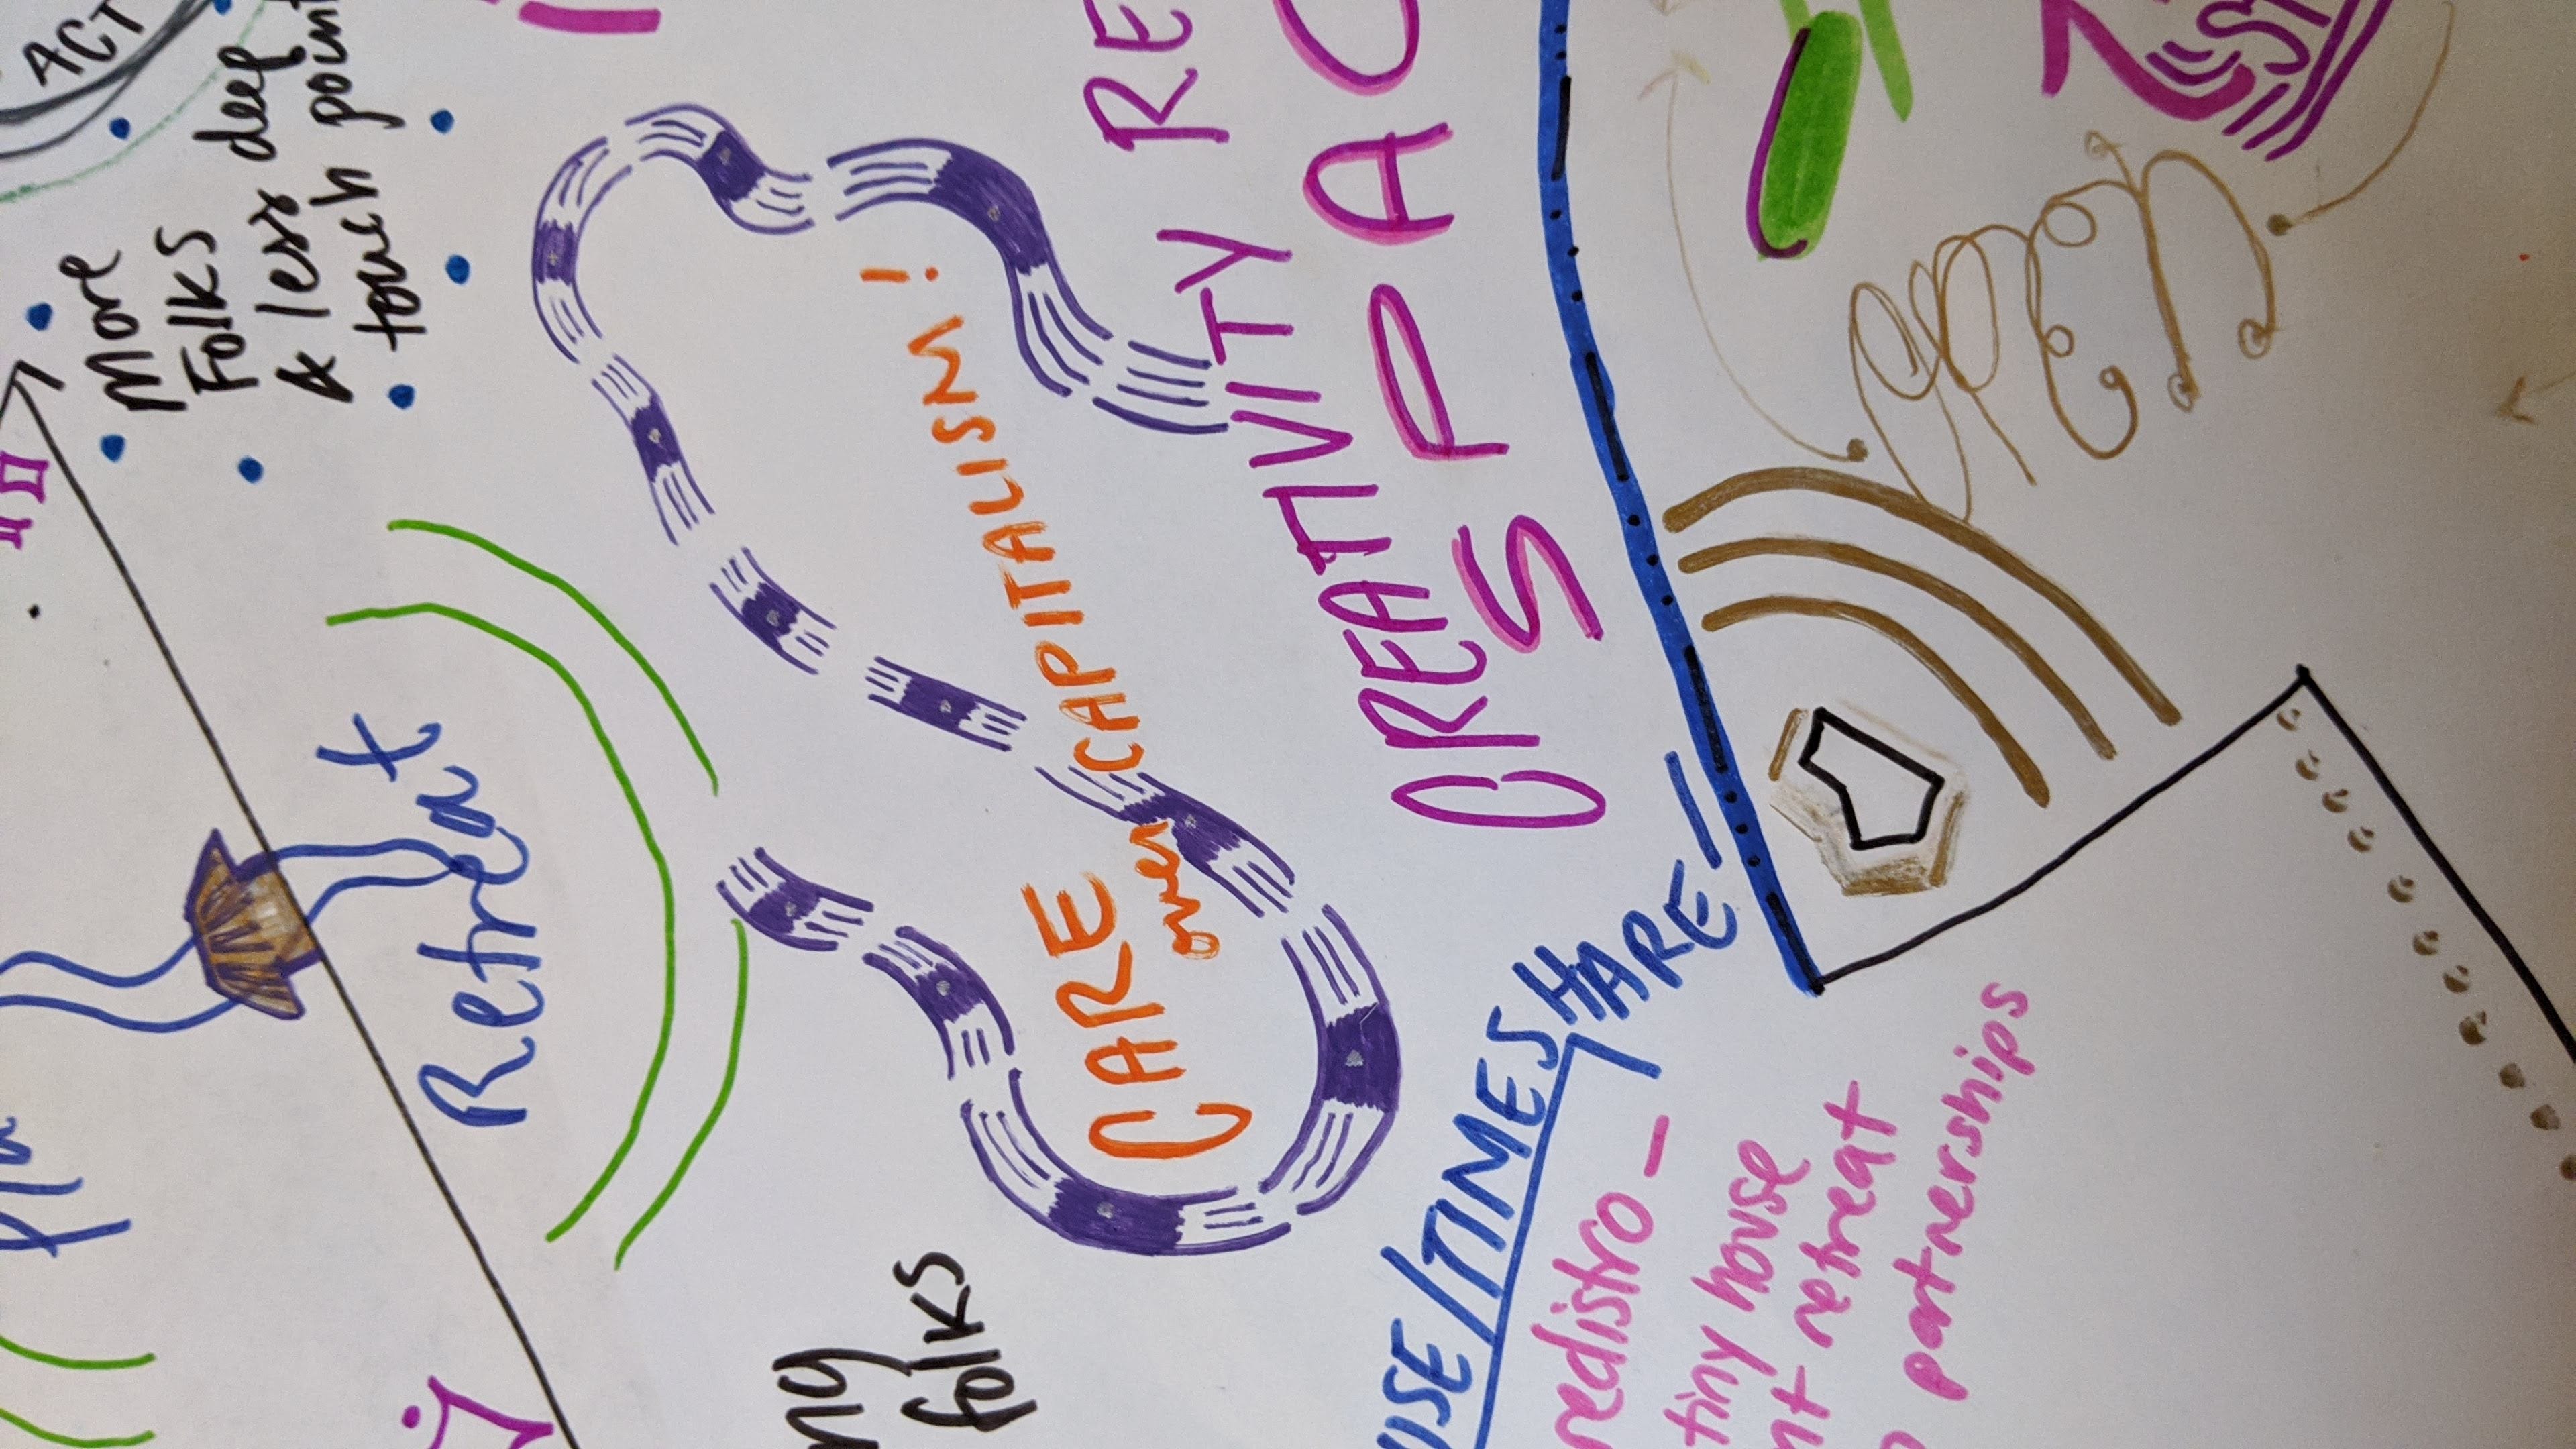 ACT
More
Folks
& less deep
touch point
Retreat
CARE
over
CAPITALISM!
CREATIVITY RE
SPAC
folks
USE/TIMESHARE
redistro -
tiny house
nt retreat
partnerships